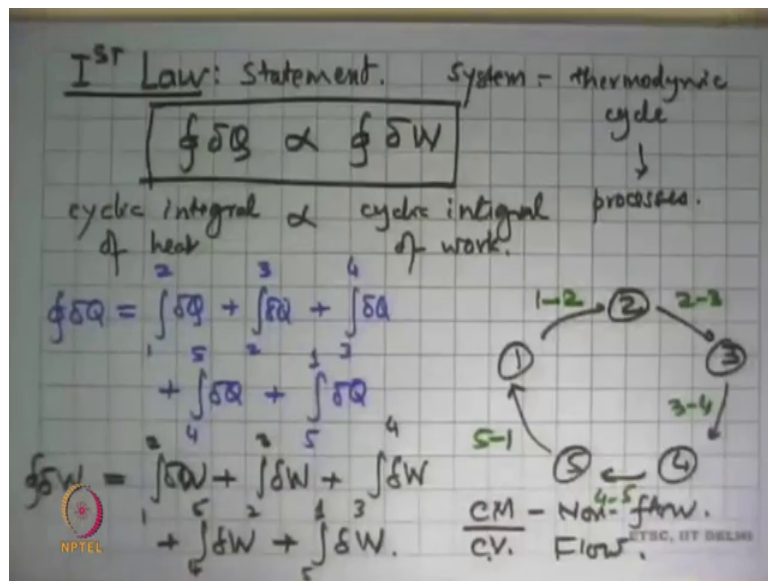 Ist Law: Statement. System - thermodynic
cycle
↓
processes.
∮ δQ ∝ ∮ δW
cyclic integral ∝ cyclic intignal
of heat of work.
∮δQ = ∫₁² δQ + ∫₂³ δQ + ∫₃⁴ δQ
+ ∫₄⁵ δQ + ∫₅¹ δQ
∮δW = ∫₁² δW + ∫₂³ δW + ∫₃⁴ δW
+ ∫₄⁵ δW + ∫₅¹ δW.
1 1-2 2 2-3 3
3-4
5-1 5 4-5 4
CM - Non-flow.
C.V. Flow.
NPTEL
ETSC, IIT DELHI